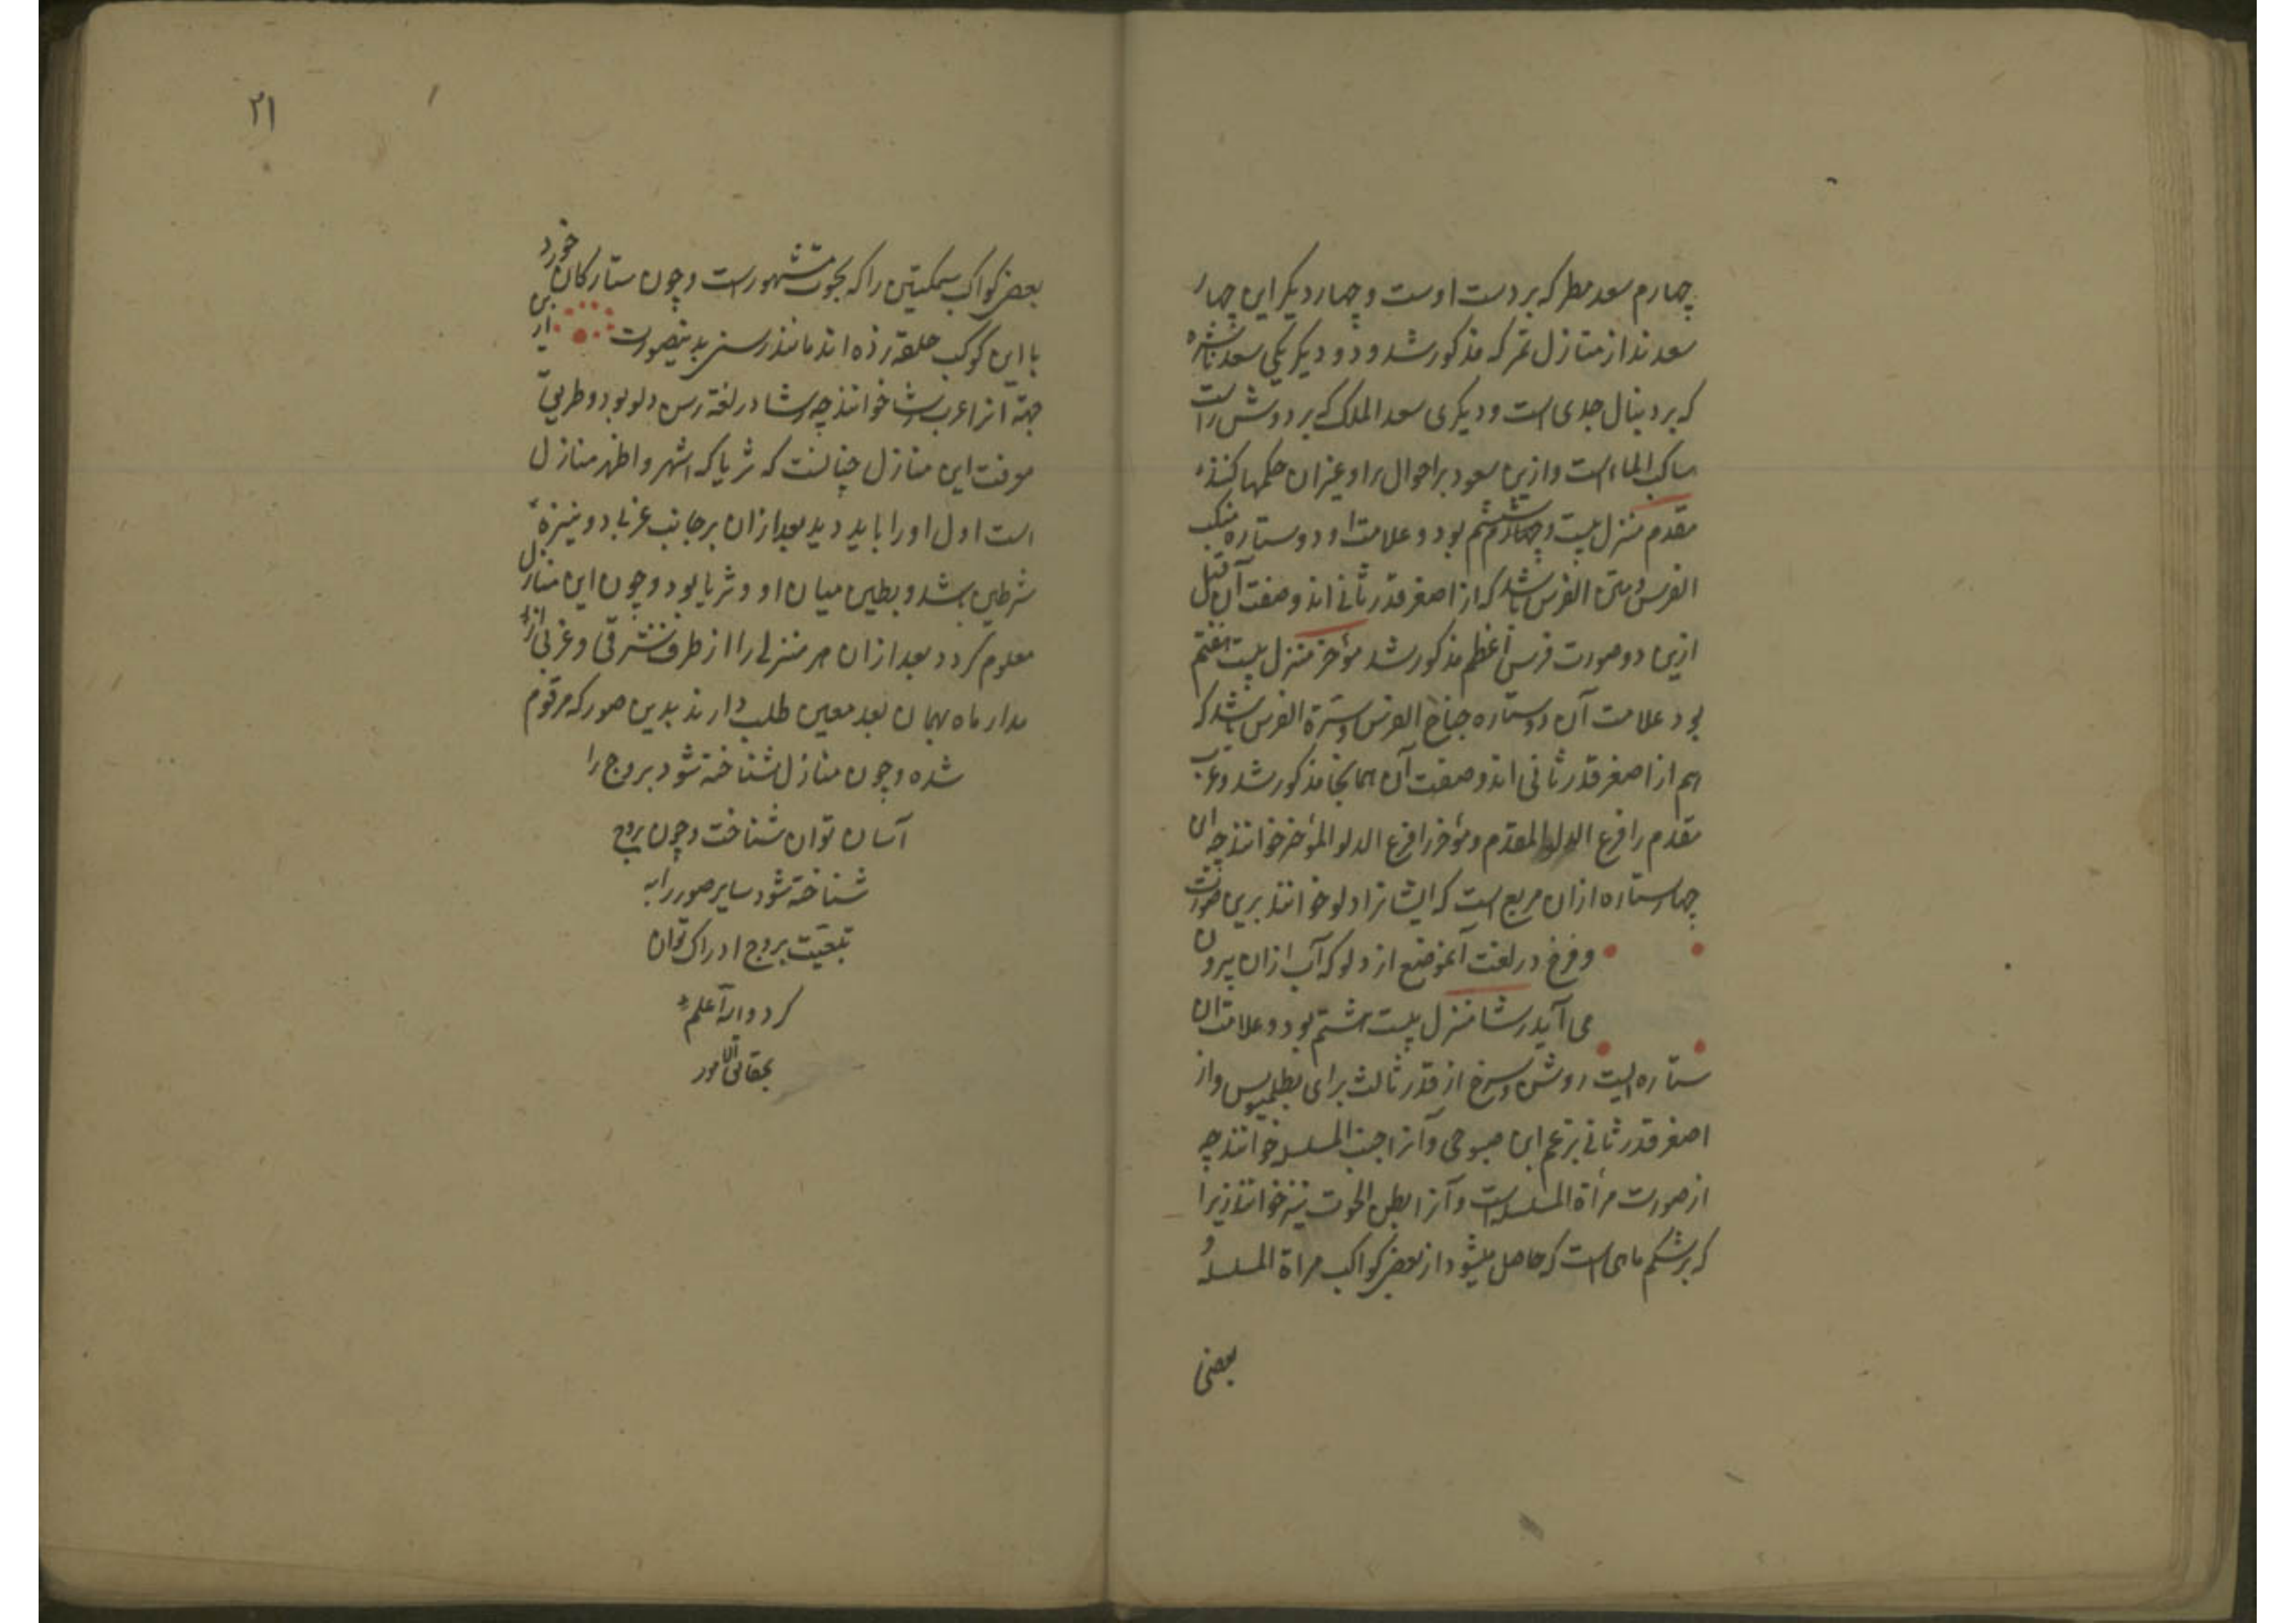 چهارم سعد مطر که بر دست اوست و چهار دیکر این چهار
سعدند از منازل قمر که مذکور شد و دو دیکر یکی سعد ناشره
که بر دنبال جدی است و دیکری سعد الملک که بر دوش راست
ساکب الماء است و ازین سعود بر احوال حکمها کنند
مقدم منزل بیست و ششم بود و علامت او دو ستاره منکب
الفرس و متن الفرس باشد که از اصغر قدر ثانی اند و صفت آن قبل
ازین در صورت فرس اعظم مذکور شد مؤخر منزل بیست هفتم
بود علامت آن دو ستاره جناح الفرس و سرة الفرس باشد که
هم از اصغر قدر ثانی اند و صفت آن همانجا مذکور شد و عرب
مقدم را فرغ الدلو المقدم و مؤخر را فرغ الدلو المؤخر خوانند چه ان
چهار ستاره ازان مربع است که ایشانرا دلو خوانند برین صورت
و فرغ در لغت آنموضع از دلو که آب ازان بیرون
می آید رشا منزل بیست هشتم بود و علامت ان
ستاره ایست روشن و سرخ از قدر ثالث برای بطلمیوس و از
اصغر قدر ثانی بزعم ابن صوفی و آنرا جنب المسلسله خوانند چه
از صورت مرأة المسلسله است و آنرا بطن الحوت نیز خوانند زیرا
که بر شکم ماهی است که حاصل میشود از بعض کواکب مراة المسلسله و
بعضی
۲۱
بعض کواکب سمکتین را که بحوت مشهورست و چون ستارکان خورد
با این کوکب حلقه زده اند مانند رسنی بدینصورت ازین
جهة انرا عرب رشا خوانند چه رشا در لغة رسن دلو بود و طریق
معرفت این منازل چنانست که ثریا که اشهر و اظهر منازل
است اول او را باید دید بعد ازان بر جانب غربی دو نیزه
شرطین باشد و بطین میان او و ثریا بود و چون این منازل
معلوم کردد بعد ازان هر منزلی را از طرف شرقی و غربی از
مدار ماه بهمان بعد معین طلب دارند بدین صور که مرقوم
شده و چون منازل شناخته شود بروج را
آسان توان شناخت و چون بروج
شناخته شود سایر صور را به
تبعیت بروج ادراک توان
کرد والله اعلم
بحقائق الامور